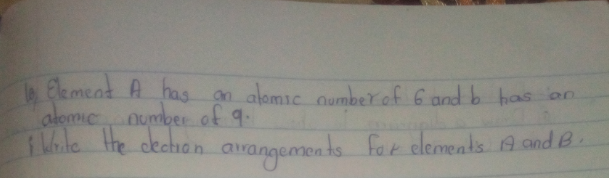 Element A has an atomic number of 6 and b has an
atomic number of 9.
i Write the electron arrangements for elements A and B.